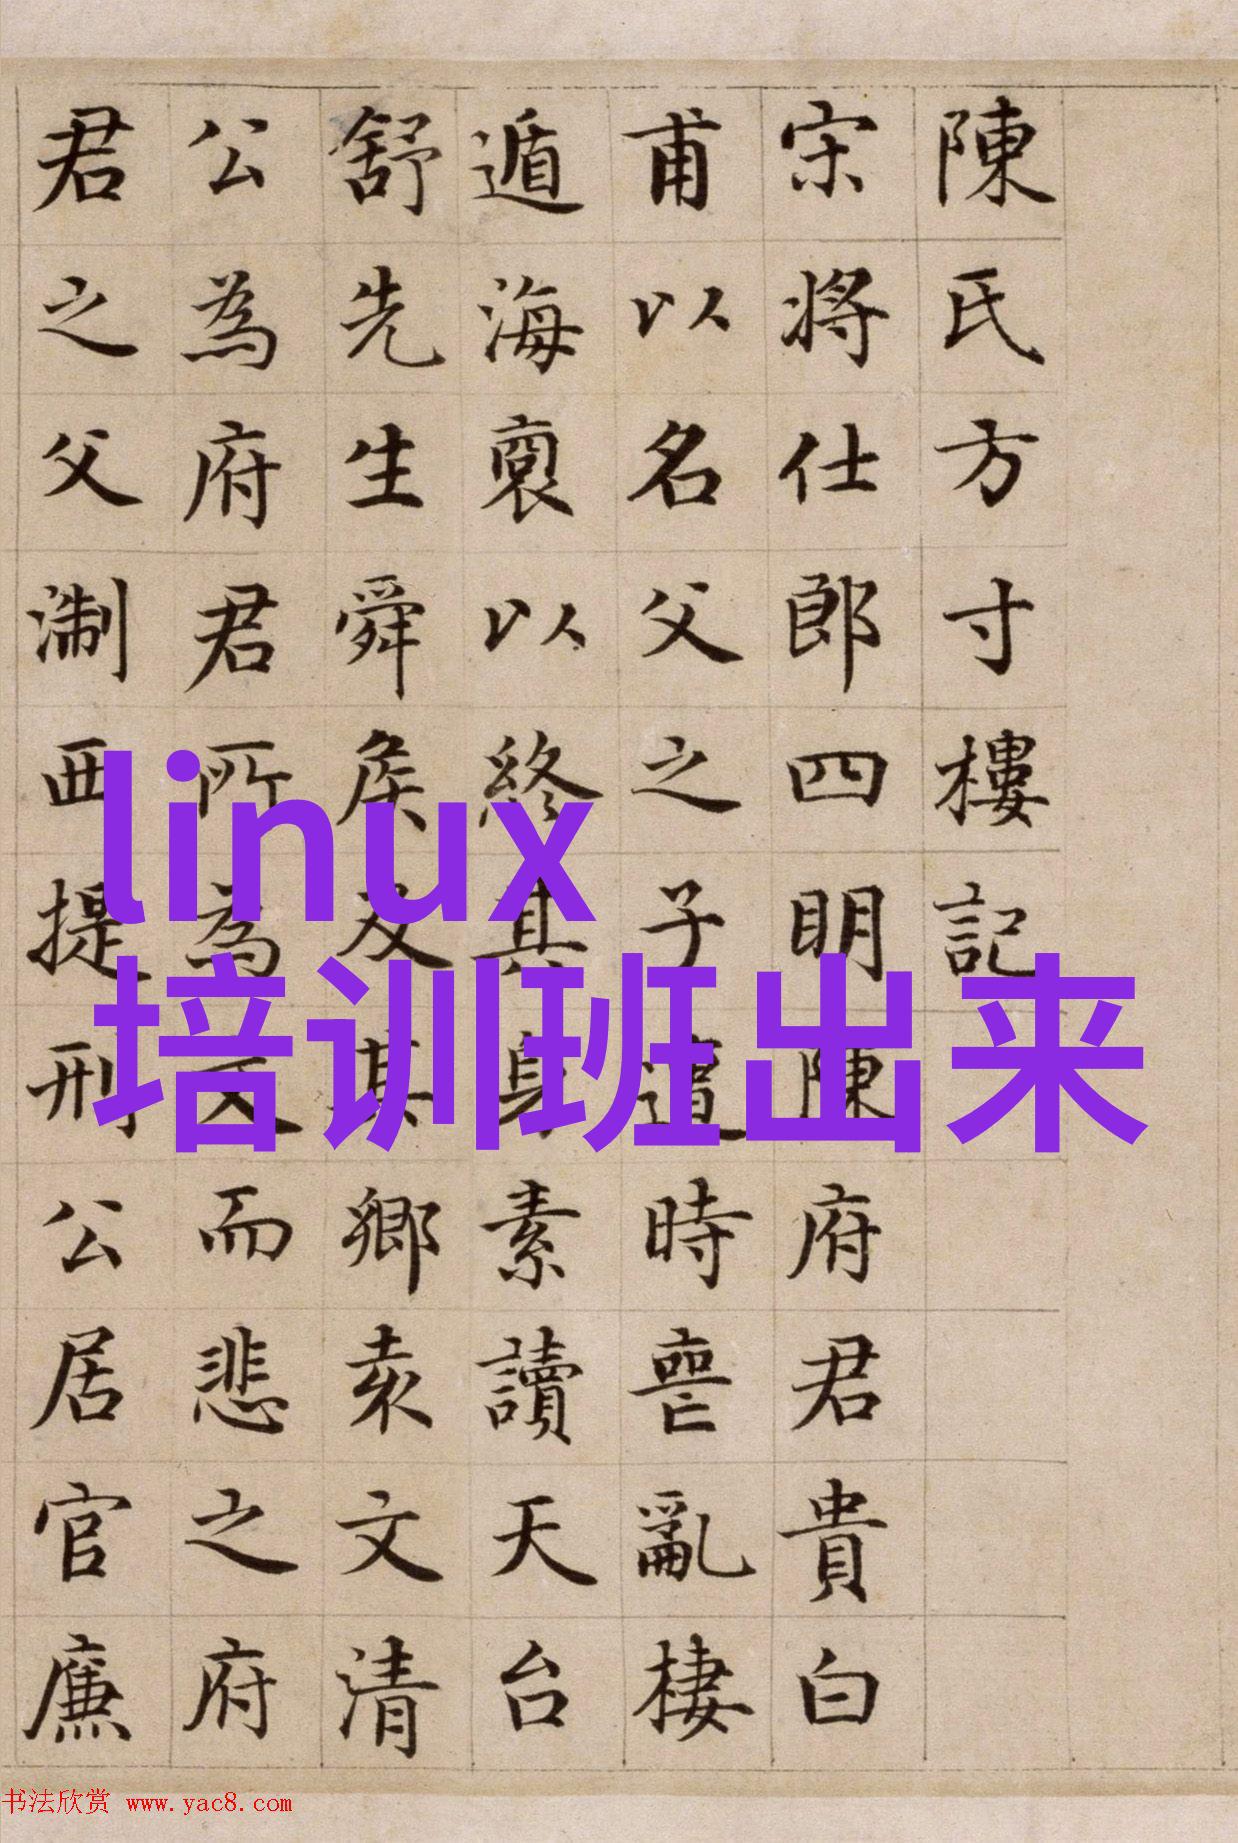 陳氏方寸樓記
宋將仕郎四明陳府君貴白
甫以名父之子遭時喪亂棲
遁海裔以終其身素讀天台
舒先生舜侯及其鄉袁文清
公為府君所為文而悲之府
君之父淛西提刑公居官廉
linux
培训班出来
书法欣赏 www.yac8.com